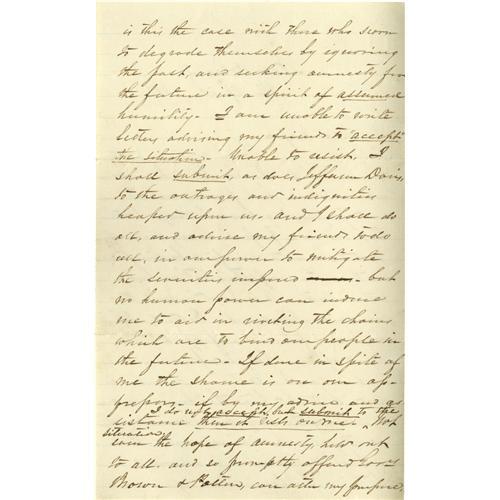 is this the case with those who scorn
to degrade themselves by ignoring
the past, and seeking amnesty for
the future in a spirit of assumed
humility. I am unable to write
letters advising my friends to accept
the situation. Unable to resist, I
shall submit, as does Jefferson Davis,
to the outrages and indignities
heaped upon us. and I shall do
all, and advise my friends to do
all, in our power to mitigate
the severities imposed - but
no human power can induce
me to aid in riveting the chains
which are to bind our people in
the future. If done in spite of
me the shame is on our op-
pressors. if by my advice and as
I do not accept, but submit to the
sistance then it rests on me. Not
situation.
even the hope of amnesty, held out
to all, and so promptly offered Govs
Brown & Patton, can alter my purpose,